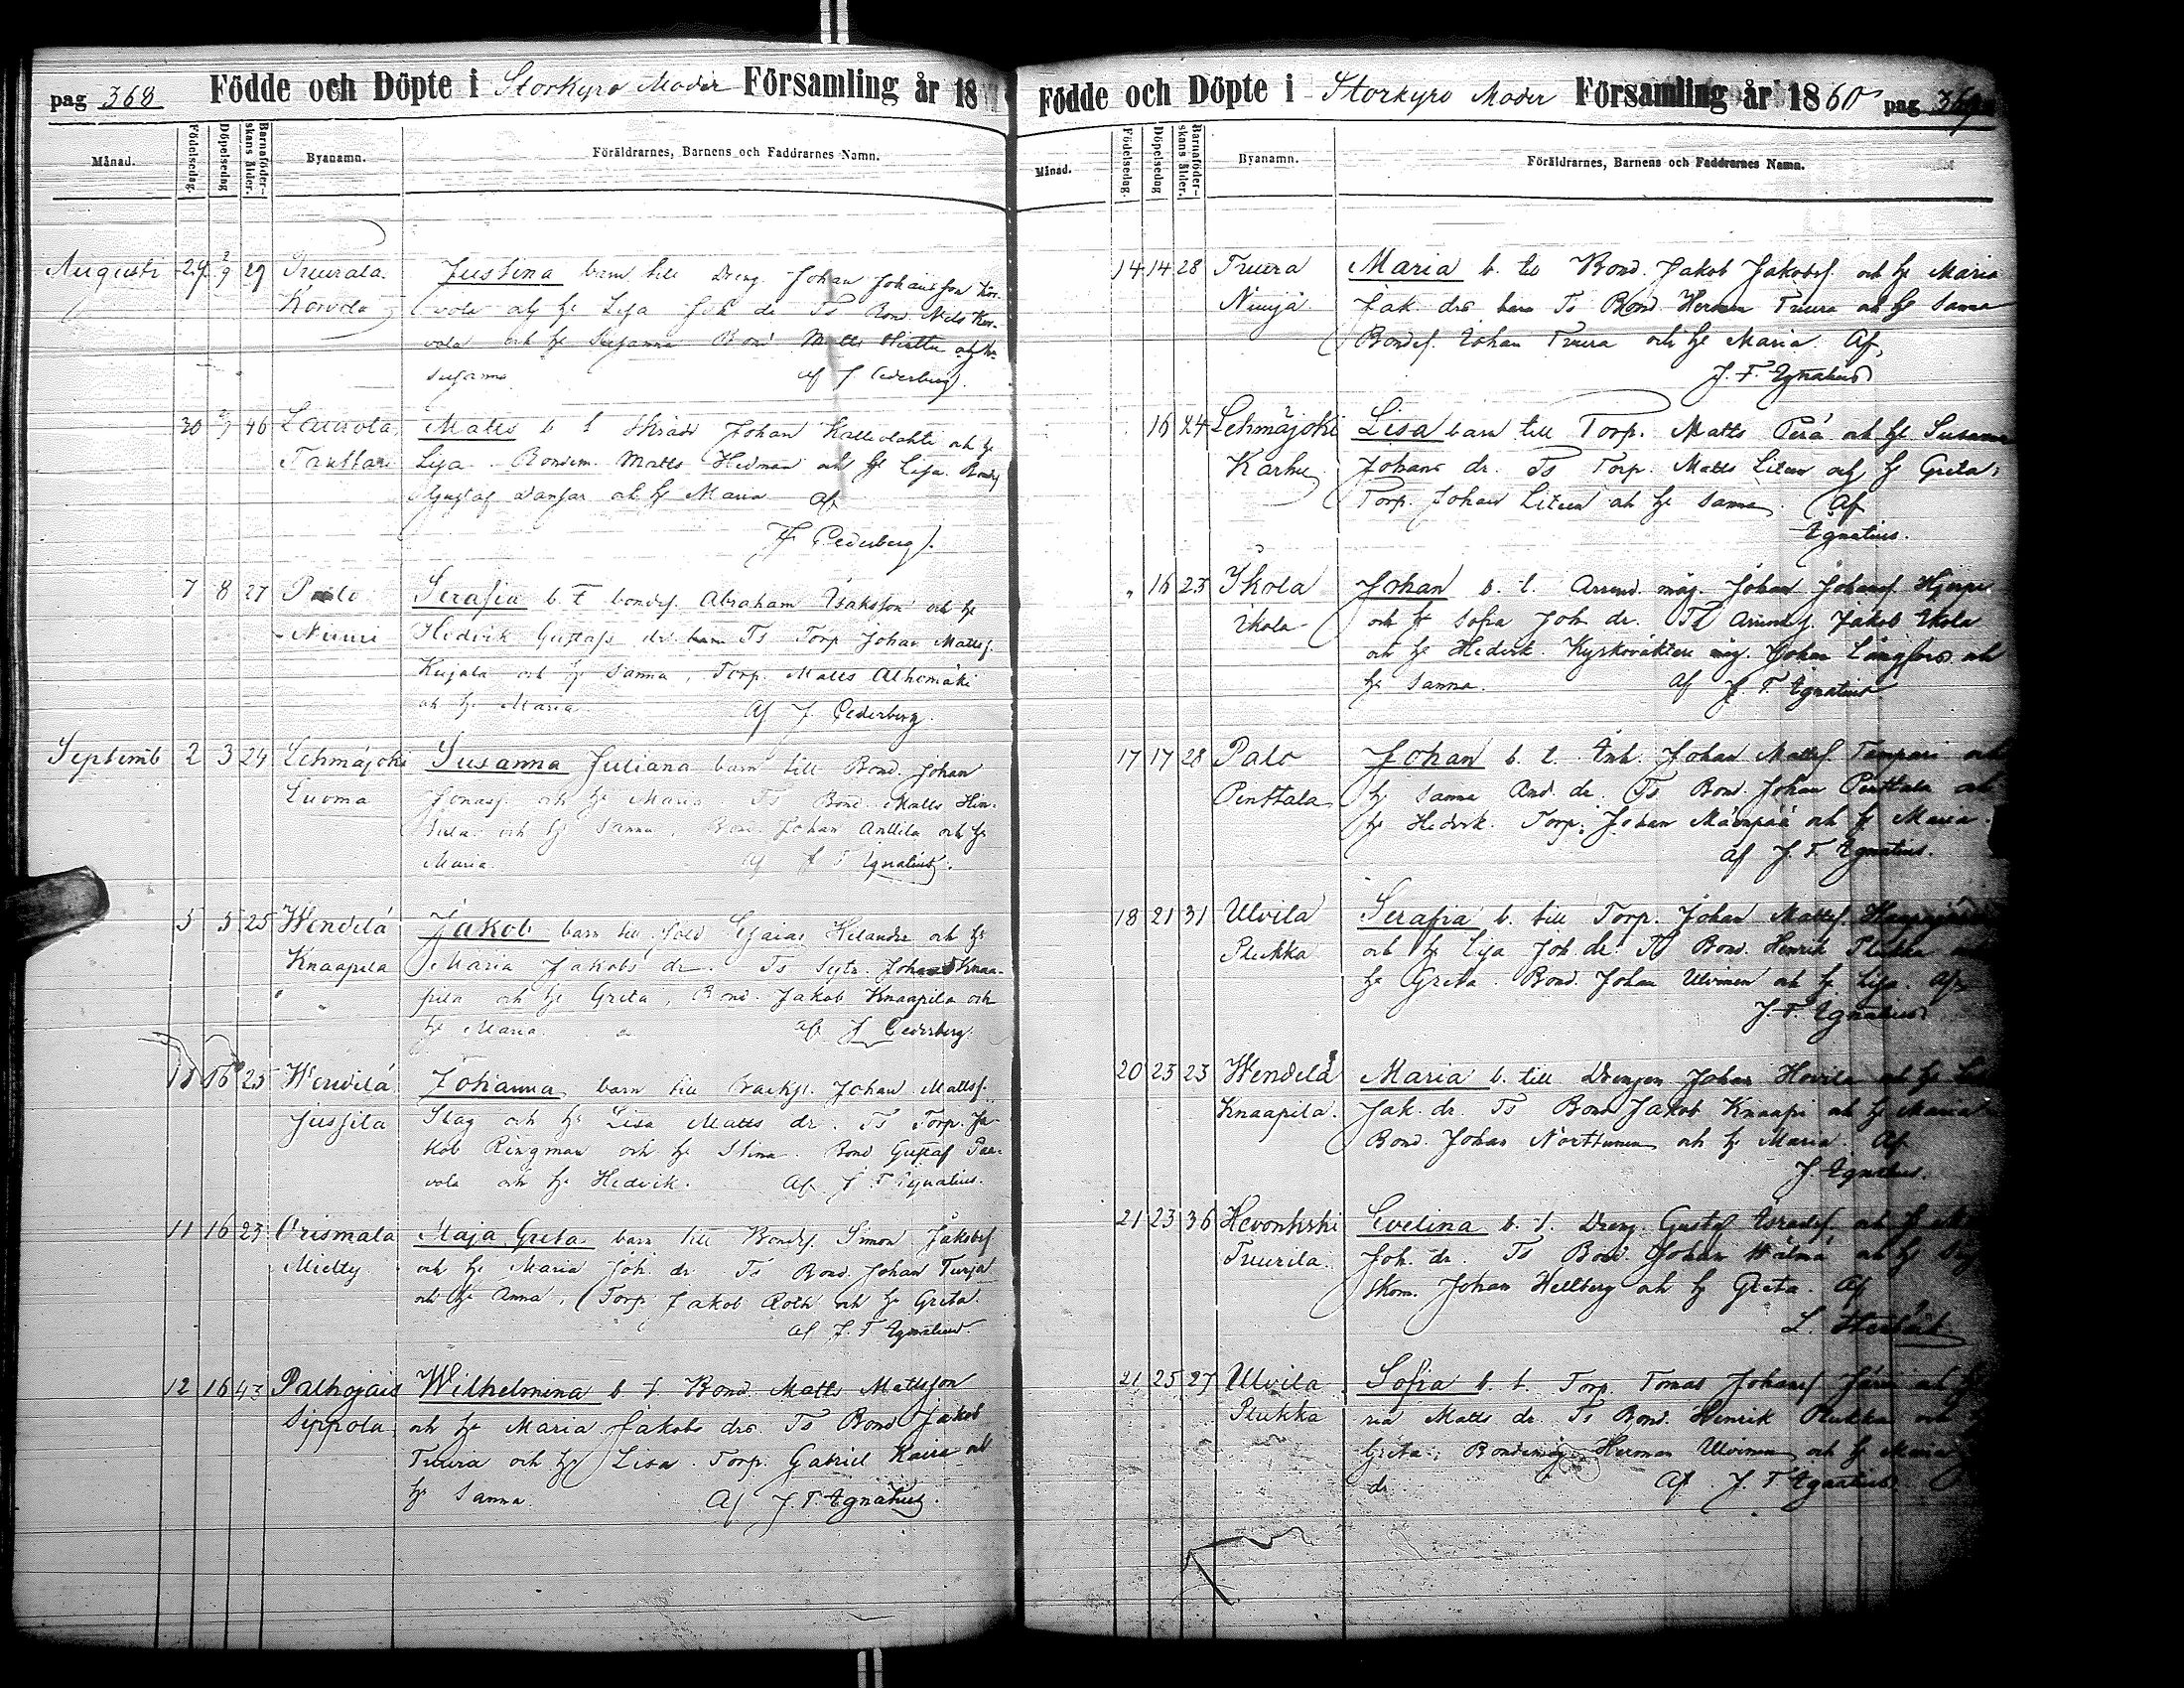 pag 368 Födde och Döpte i Storkyro Moder Församling år 18
Månad. Födelsedag. Döpelsedag Barnaföderskans Ålder. Byanamn. Föräldrarnes, Barnens och Faddrarnes Namn.
Augusti 29 2/9 29 Justina barn till Dreng Johan Johansson Kor-
Korvola vola och h Lisa Joh dr Ts Bond Nils Kor-
vola och h Susanna Bond Matts
Susanna af J Cederberg.
30 46 Laurola Matts b t Johan och h
Lisa Bondem. Matts Hedman och h Lisa Bond
Gustaf och h Maria Af
J Cederberg.
7 8 27 Palo Serafia b. t bondes. Abraham Isaksson och h
Niuri Hedvik Gustafs dr. Ts Torp Johan Matts.
Kujala och h Sanna, Torp. Matts Alhomäki
och h Maria. Af J Cederberg.
Septemb 2 3 24 Lehmäjoki Susanna Juliana barn till Bond. Johan
Luoma Jonas. och h Maria. Ts Bond. Matts Hin-
och h Sanna, Bond. Johan Anttila och h
Maria. af J F Ignatius.
5 5 25 Wendelä Jakob barn till Sold Helander och h
Knaapila Maria Jakobs dr. Ts Johan Knaa-
pila och h Greta, Bond. Jakob Knaapila och
h Maria af J Cederberg.
16 25 Wendelä Johanna barn till Johan Matts.
Jussila Slag och h Lisa Matts dr. Ts Torp. Ja-
kob Ringman och h Stina. Bond Gustaf Paa-
vola och h Hedvik. Af J F Ignatius.
11 16 23 Orismala Maja Greta barn till Bonds. Simon Jakobs.
Mietty och h Maria Joh. dr Ts Bond. Johan Turja
och h Anna, Torp Jakob Roth och h Greta.
af J. F Ignatius.
12 16 43 Palhojais Wilhelmina b t. Bond. Matts Mattsson
Sippola och h Maria Jakobs dr. Ts Bond Jakob
Tuura och h Lisa. Torp. Gabriel Kaira och
h Sanna. Af J F. Ignatius.
Födde och Döpte i Storkyro Moder Församling år 1860 pag 369
Månad. Födelsedag. Döpelsedag Barnaföderskans Ålder. Byanamn. Föräldrarnes, Barnens och Faddrarnes Namn.
14 14 28 Tuura Maria b. till Bond. Jakob Jakobs. och h Maria
Jak. dr Ts Bond. Herman Tuura och h Sanna
Bondes. Johan Tuura och h Maria. Af
J. F. Ignatius
16 24 Lehmäjoki Lisa barn till Torp. Matts Perä och h Susanna
Karhu Johans dr. Ts Torp. Matts och h Greta,
Torp. Johan och h Sanna. Af
Ignatius.
" 16 23 Ikola Johan b. t. Arrend. måg. Johan Johans. Hjerpe
Ikola och h Sofia Joh dr. Ts Jakob Ikola
och h Hedvik. Kyrkoväktare måg. Johan Långfors och
h Sanna. Af J. F. Ignatius
17 17 28 Palo Johan b. t. Inh. Johan Matts. Tampari och
Penttala h Sanna And. dr. Ts Bond. Johan Penttala och
h Hedvik. Torp. Johan Mäenpää och h Maria.
af J. F. Ignatius.
18 21 31 Ulvila Serafia b. till Torp. Johan Matts.
Plukka och h Lisa Joh. dr. Ts Bond. Henrik Plukka och
h Greta. Bond. Johan Ulvinen och h Lisa. Af
J. F. Ignatius
20 23 23 Wendelä Maria b. till Drengen Johan Hovila och h
Knaapila. Jak. dr. Ts Bond Jakob Knaapi och h Maria
Bond. Johan Norttunen och h Maria. Af
J. Ignatius.
21 23 36 Hevonkoski Evelina b. t. Dreng. Gustaf Israels. och h
Tuurila Joh. dr. Ts Bond. Johan Wälmä och h
Skom. Johan Hellberg och h Greta. Af
L.
21 25 27 Ulvila Sofia b. t. Torp. Tomas Johans. Järvi och h
Plukka ria Matts dr. Ts Bond. Henrik Plukka och
Greta; Bondemåg Herman Ulvinen och h Maria
dr Af J. F. Ignatius